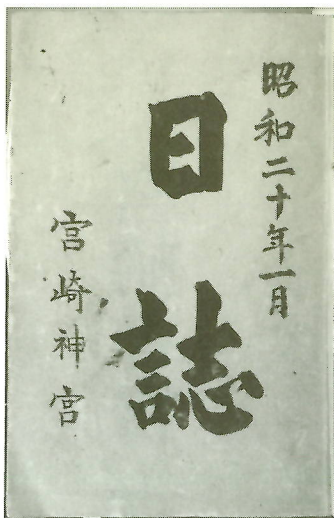 昭和二十年一月
日誌
宮崎神宮